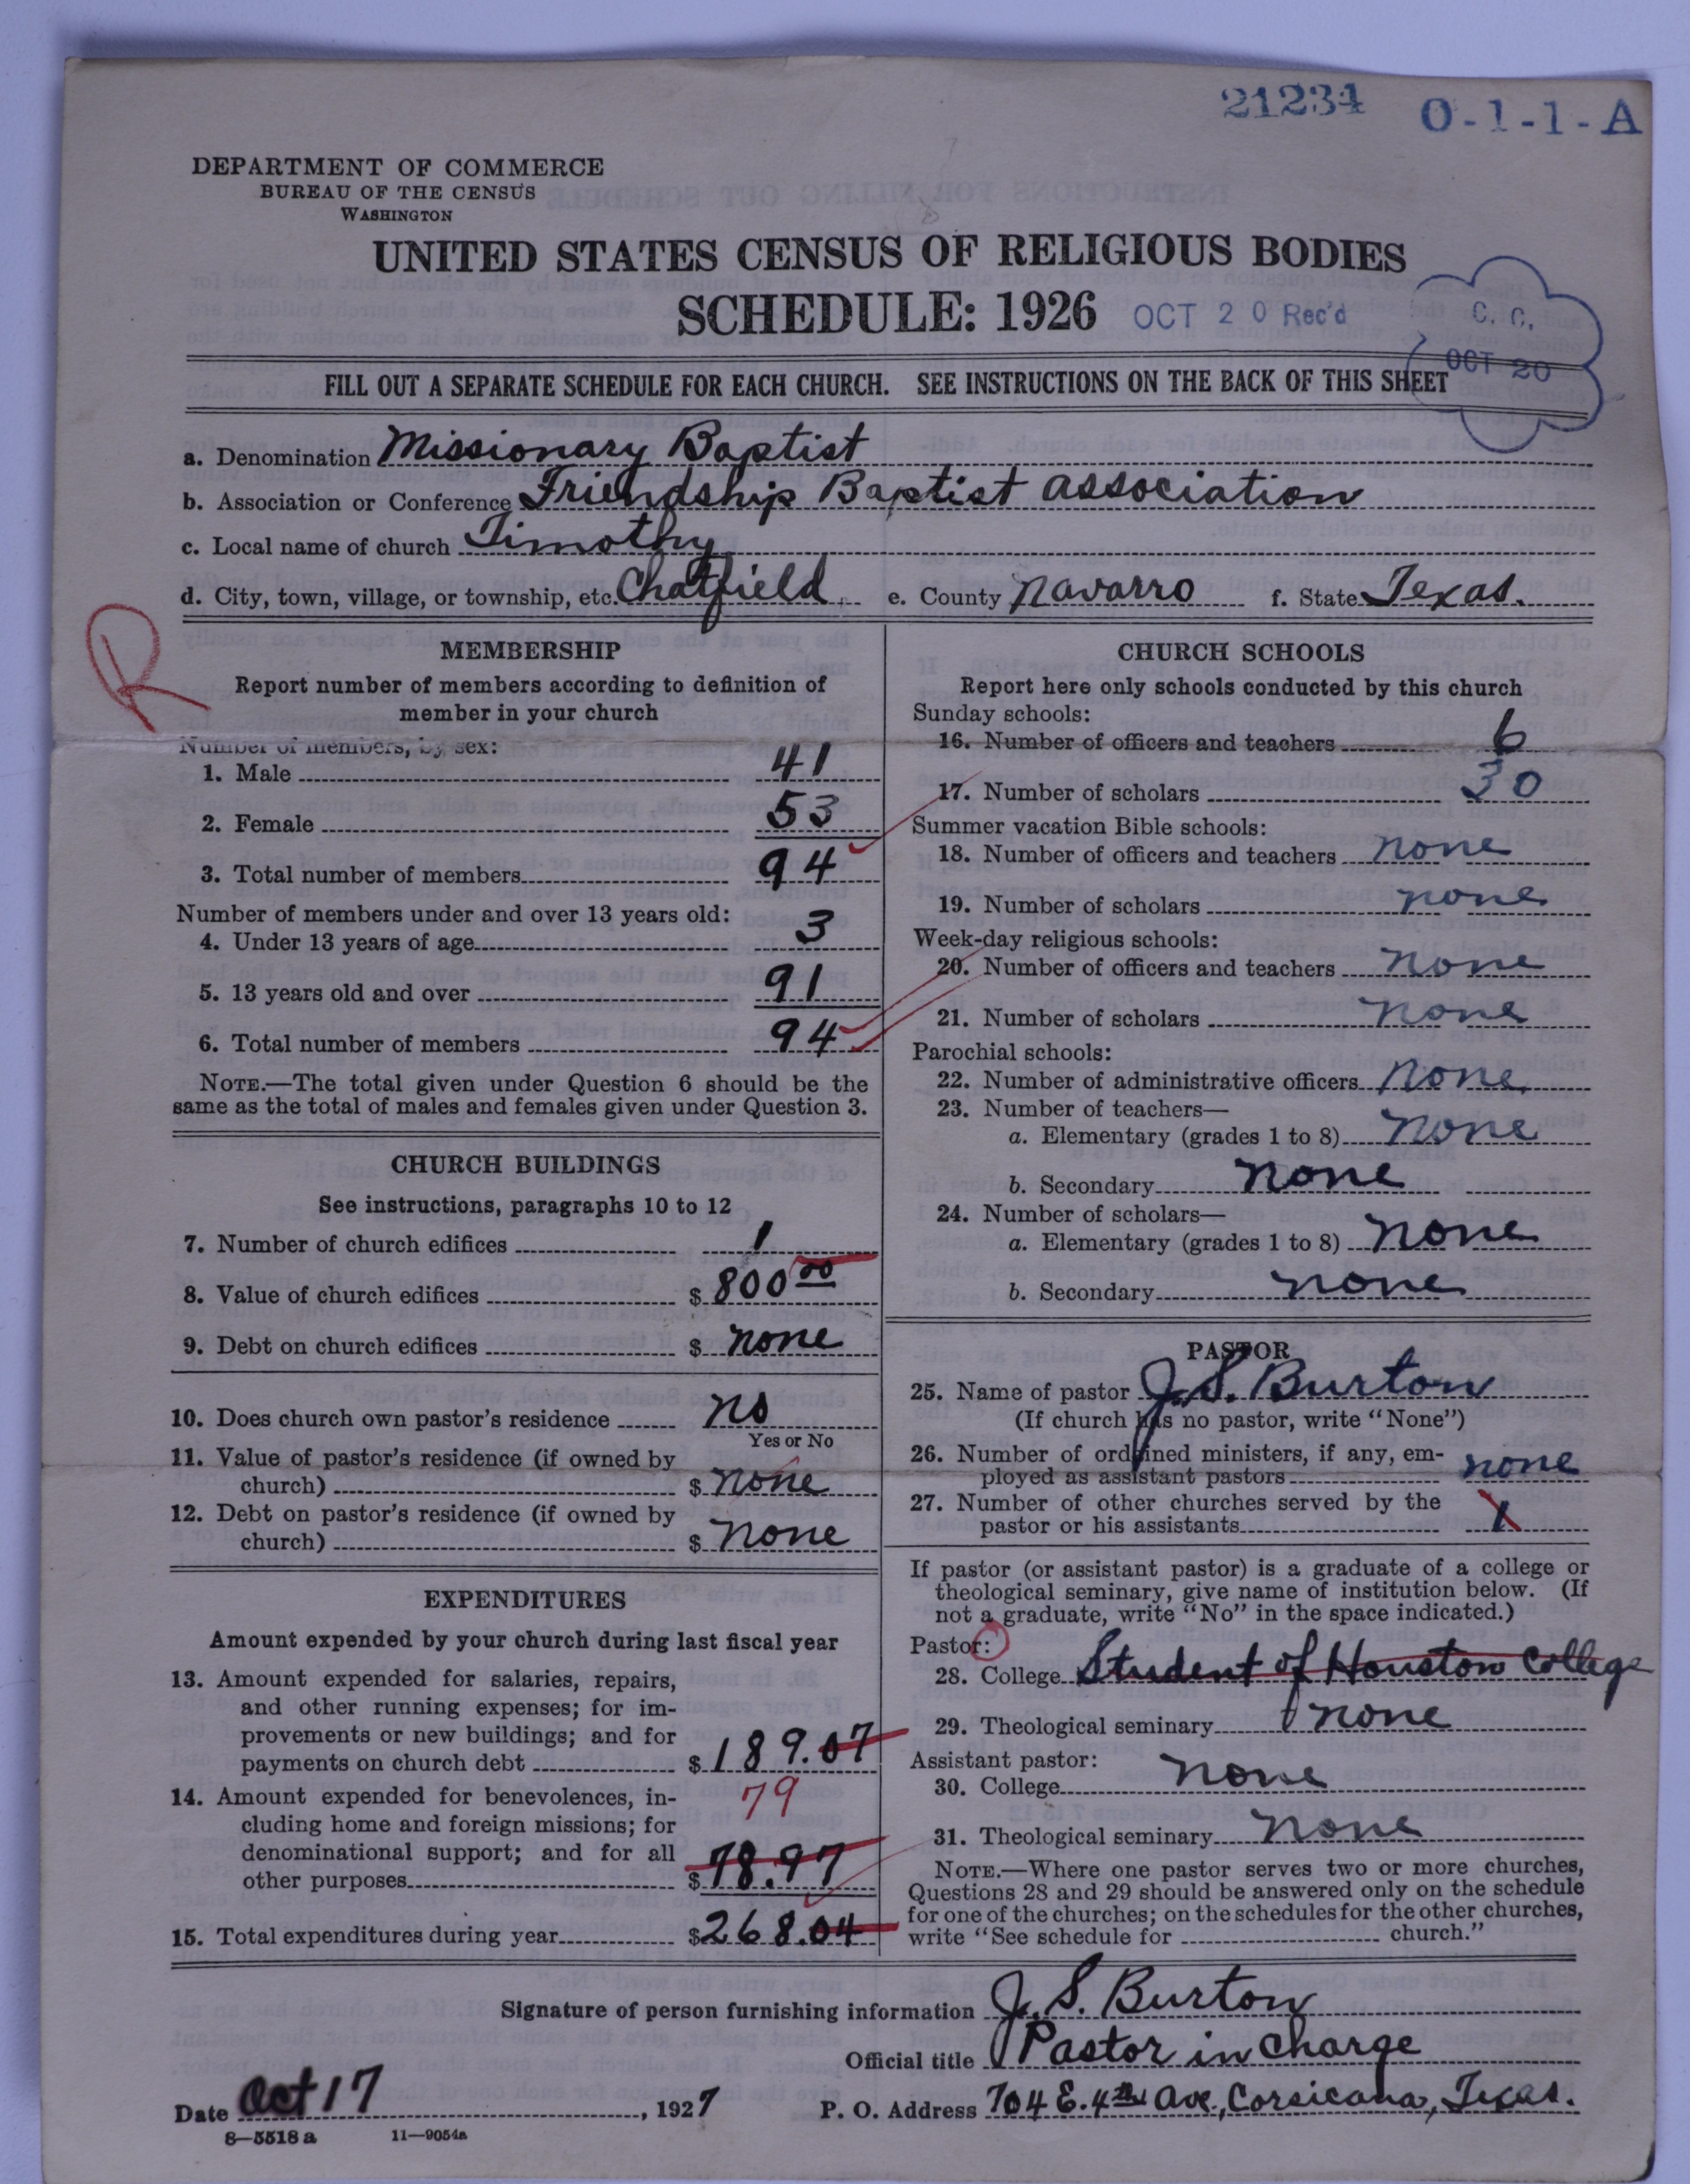 21234 O-1-1-A
DEPARTMENT OF COMMERCE
BUREAU OF THE CENSUS
WASHINGTON
UNITED STATES CENSUS OF RELIGIOUS BODIES
SCHEDULE: 1926 OCT 20 Rec'd
C. C.
OCT 20
FILL OUT A SEPARATE SCHEDULE FOR EACH CHURCH. SEE INSTRUCTIONS ON THE BACK OF THIS SHEET
a. Denomination Missionary Baptist
b. Association or Conference Friendship Baptist Association
c. Local name of church Timothy
d. City, town, village, or township, etc. Chatfield e. County Navarro f. State Texas.
R
MEMBERSHIP
Report number of members according to definition of
member in your church
Number of members, by sex:
1. Male 41
2. Female 53
3. Total number of members 94
Number of members under and over 13 years old:
4. Under 13 years of age 3
5. 13 years old and over 91
6. Total number of members 94
NOTE.—The total given under Question 6 should be the
same as the total of males and females given under Question 3.
CHURCH BUILDINGS
See instructions, paragraphs 10 to 12
7. Number of church edifices 1
8. Value of church edifices $ 800 00
9. Debt on church edifices $ none
10. Does church own pastor's residence no
Yes or No
11. Value of pastor's residence (if owned by
church) $ none
12. Debt on pastor's residence (if owned by
church) $ none
EXPENDITURES
Amount expended by your church during last fiscal year
13. Amount expended for salaries, repairs,
and other running expenses; for im-
provements or new buildings; and for
payments on church debt $ 189.07
14. Amount expended for benevolences, in- 79
cluding home and foreign missions; for
denominational support; and for all
other purposes $ 78.97
15. Total expenditures during year $268.04
CHURCH SCHOOLS
Report here only schools conducted by this church
Sunday schools:
16. Number of officers and teachers 6
17. Number of scholars 30
Summer vacation Bible schools:
18. Number of officers and teachers none
19. Number of scholars none
Week-day religious schools:
20. Number of officers and teachers none
21. Number of scholars none
Parochial schools:
22. Number of administrative officers none
23. Number of teachers—
a. Elementary (grades 1 to 8) none
b. Secondary none
24. Number of scholars—
a. Elementary (grades 1 to 8) none
b. Secondary none
PASTOR
25. Name of pastor J. S. Burton
(If church has no pastor, write "None")
26. Number of ordained ministers, if any, em-
ployed as assistant pastors none
27. Number of other churches served by the
pastor or his assistants 1
If pastor (or assistant pastor) is a graduate of a college or
theological seminary, give name of institution below. (If
not a graduate, write "No" in the space indicated.)
Pastor:
28. College Student of Houston College
29. Theological seminary none
Assistant pastor:
30. College none
31. Theological seminary none
NOTE.—Where one pastor serves two or more churches,
Questions 28 and 29 should be answered only on the schedule
for one of the churches; on the schedules for the other churches,
write "See schedule for church."
Signature of person furnishing information J. S. Burton
Official title Pastor in charge
Date Oct 17, 1927 P. O. Address 704 E. 4th Ave., Corsicana, Texas.
8—5518 a 11—9054a